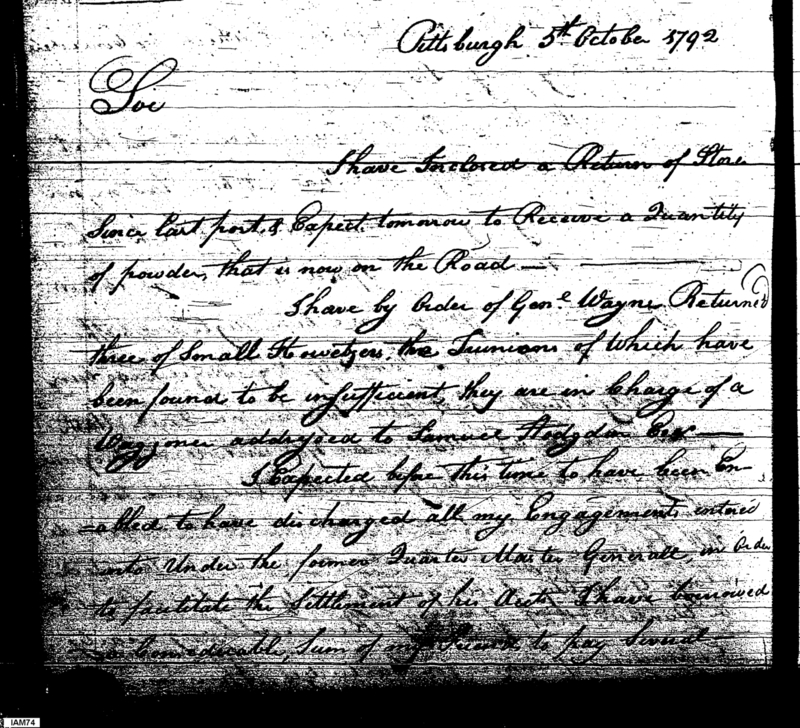 Pittsburgh 5th October 1792
Sir
I have Inclosed a Return of Store
Since last post, & Expect tomorrow to Receive a Quantity
of powder, that is now on the Road —
I have by Order of Genl. Wayne Returned
three of Small Howetzers, the Trunions of Which have
been found to be insufficient, they are in Charge of a
Waggoner addressed to Samuel Hodgdon Esr —
I Expected before this time to have been En-
-abled to have discharged all my Engagements entered
into Under the former Quarter Master Generall, in Order
to facilitate the Settlement of his Accts I have borrowed
a Considerable Sum of my friend to pay Several
IAM74